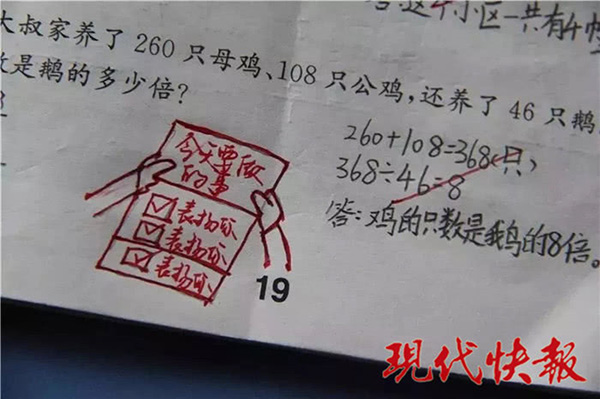 这个小区一共有4幢
大叔家养了 260 只母鸡、108 只公鸡，还养了 46 只鹅
数是鹅的多少倍？
260+108=368(只)
368÷46=8
答：鸡的只数是鹅的8倍。
今天要做
的事
表扬你
表扬你
表扬你
19
現代快報